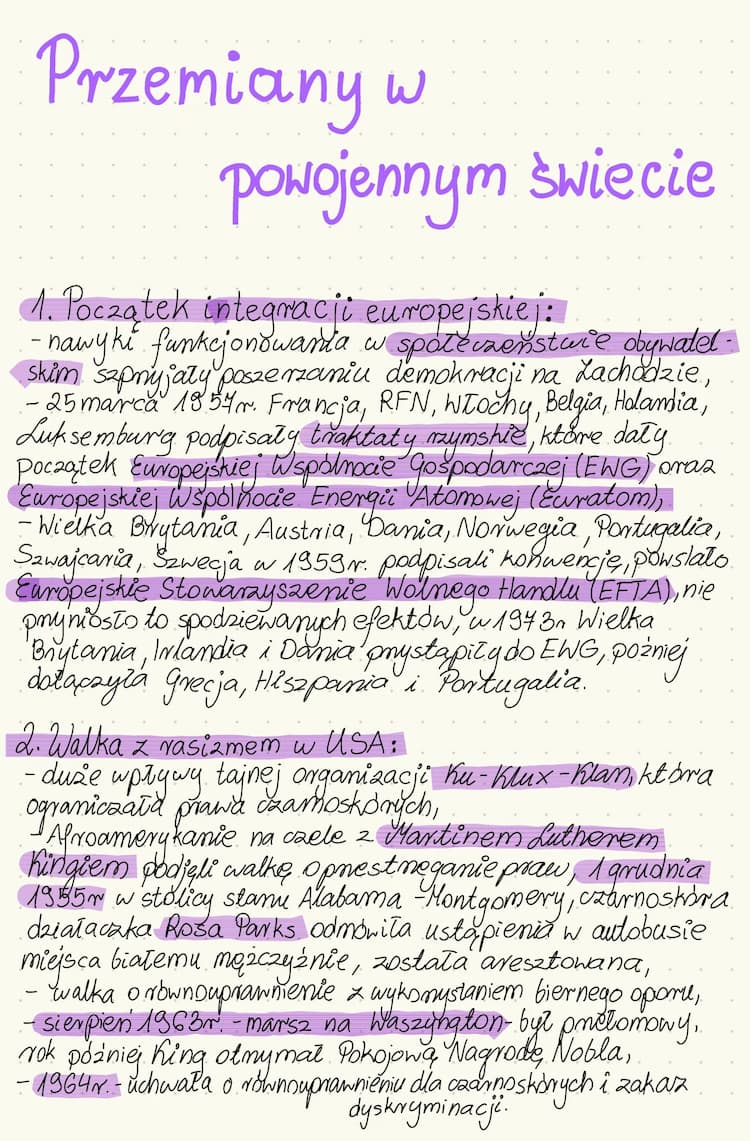 Przemiany w
powojennym świecie
1. Początek integracji europejskiej:
- nawyki funkcjonowania w społeczeństwie obywatel-
skim szprzyjały poszerzaniu demokracji na Zachodzie,
- 25 marca 1957r. Francja, RFN, Włochy, Belgia, Holandia,
Luksemburg podpisały traktaty rzymskie, które dały
początek Europejskiej Wspólnocie Gospodarczej (EWG) oraz
Europejskiej Wspólnocie Energii Atomowej (Euratom),
- Wielka Brytania, Austria, Dania, Norwegia, Portugalia,
Szwajcaria, Szwecja w 1959r. podpisali konwencję, powstało
Europejskie Stowarzyszenie Wolnego Handlu (EFTA), nie
przyniosło to spodziewanych efektów, w 1973r Wielka
Brytania, Irlandia i Dania przystąpiły do EWG, poźniej
dołączyła Grecja, Hiszpania i Portugalia.
2. Walka z rasizmem w USA:
- duże wpływy tajnej organizacji Ku-Klux-Klan, która
ograniczała prawa czarnoskórych,
- Afroamerykanie na czele z Martinem Lutherem
Kingiem podjęli walkę o przestrzeganie praw, 1 grudnia
1955r w stolicy stanu Alabama - Montgomery, czarnoskóra
działaczka Rosa Parks odmówiła ustąpienia w autobusie
miejsca białemu mężczyźnie, została aresztowana,
- walka o równouprawnienie z wykorzystaniem biernego oporu,
- sierpień 1963r. - marsz na Waszyngton - był przełomowy,
rok później King otrzymał Pokojową Nagrodę Nobla,
- 1964r. - uchwała o równouprawnieniu dla czarnoskórych i zakaz
dyskryminacji.